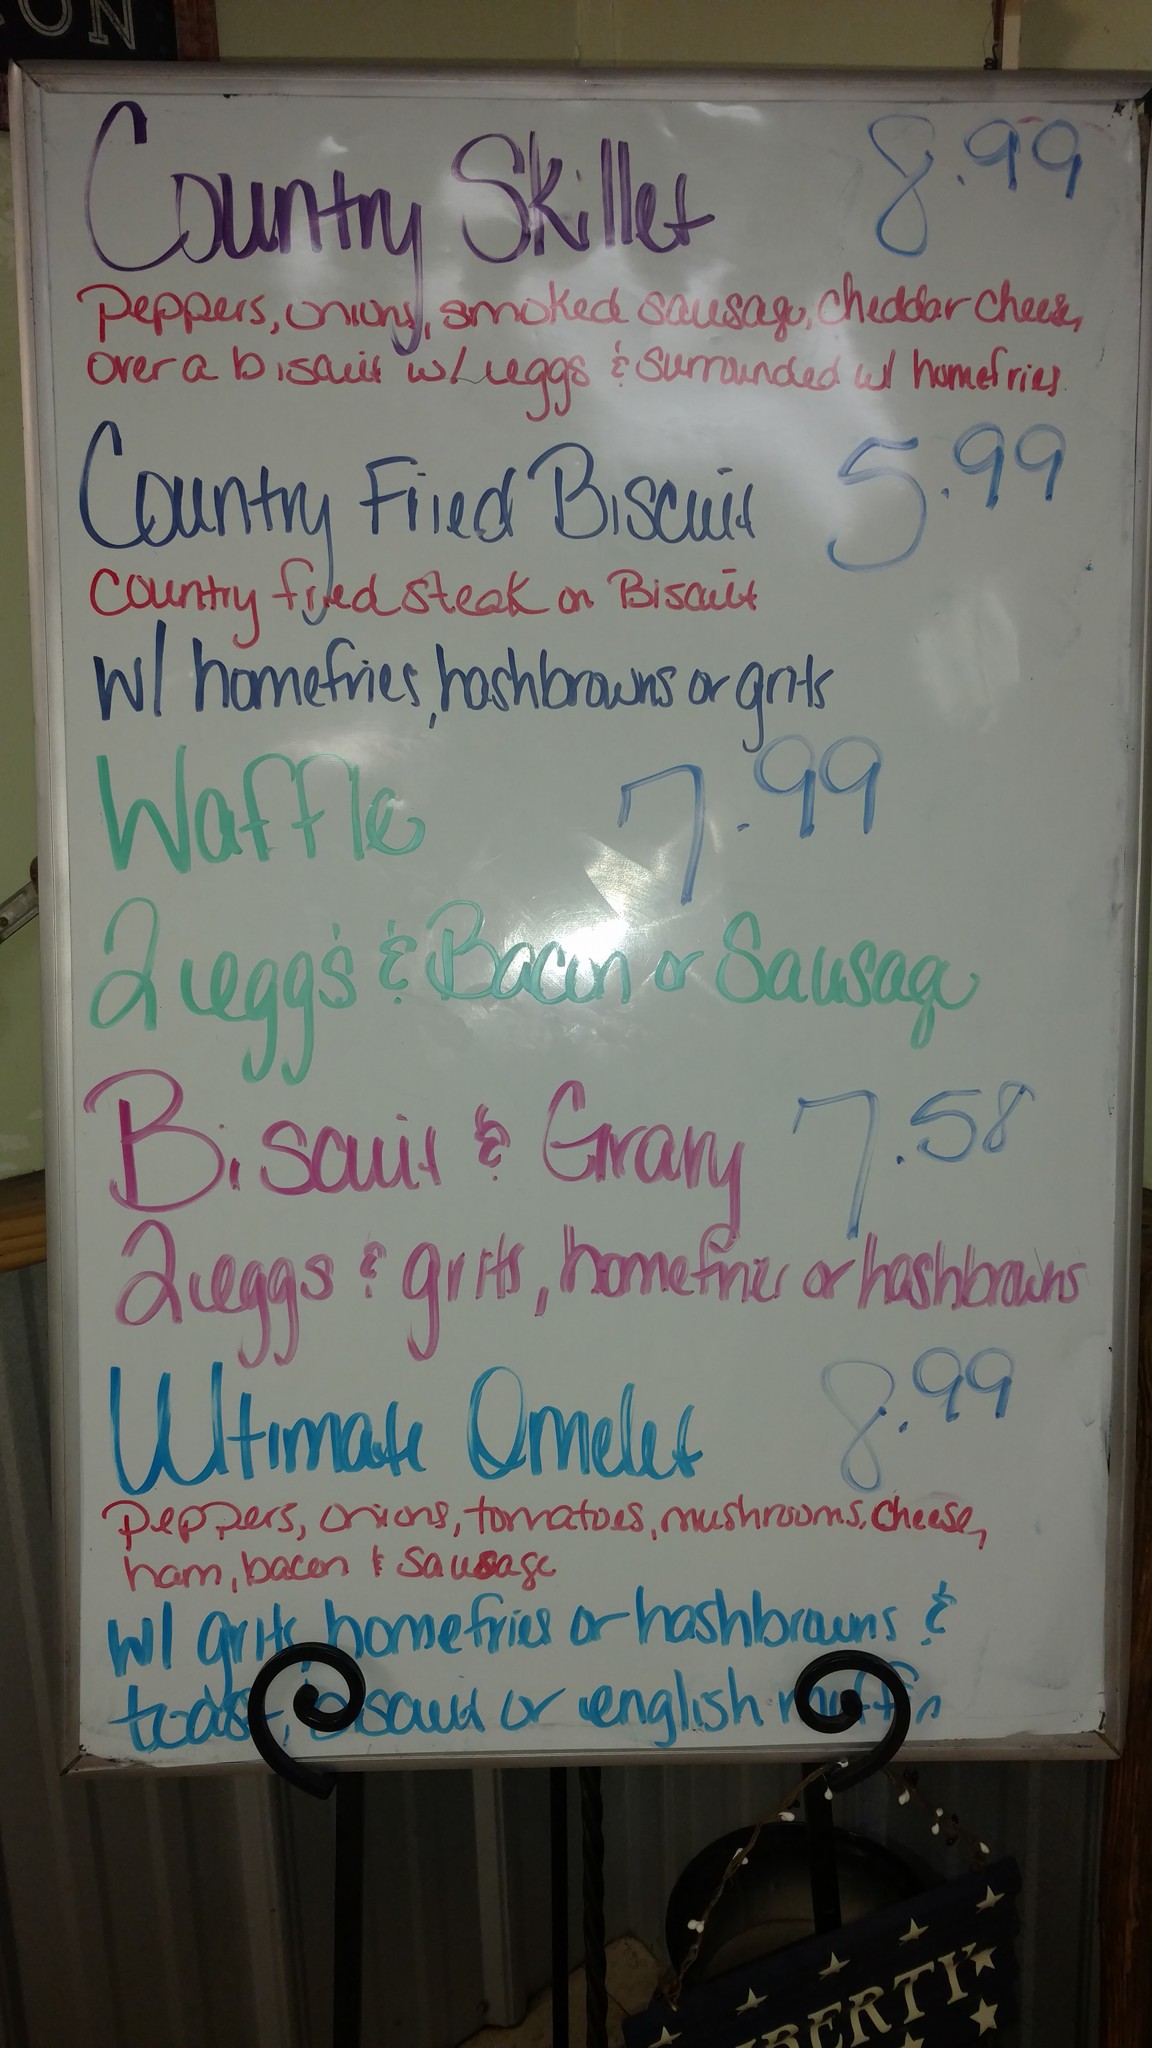 ON
Country Skillet 8.99
peppers, onions, smoked sausage, cheddar cheese,
over a biscuit w/ eggs & surrounded w/ homefries
Country Fried Biscuit 5.99
country fried steak on Biscuit
w/ homefries, hashbrowns or grits
Waffle 7.99
2 eggs & Bacon or Sausage
Biscuit & Gravy 7.58
2 eggs & grits, homefries or hashbrowns
Ultimate Omelet 8.99
peppers, onions, tomatoes, mushrooms, cheese,
ham, bacon & sausage
w/ grits, homefries or hashbrowns &
toast, biscuit or english muffin
LIBERTY